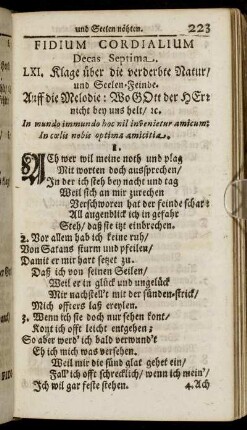 und Seelen nöhten. 223
FIDIUM CORDIALIUM
Decas Septima.
LXI. Klage über die verderbte Natur/
und Seelen-Feinde.
Auff die Melodie: Wo GOtt der HErr
nicht bey uns helt/ ꝛc.
In mundo immundo hoc nil invenietur amicum;
In cœlis nobis optima amicitia.
1.
ACh wer wil meine noth und plag
Mit worten doch aussprechen/
In der ich steh bey nacht und tag
Weil sich an mir zurechen
Verschworen hat der feinde schar:
All augenblick ich in gefahr
Steh/ daß sie itzt einbrechen.
2. Vor allem hab ich keine ruh/
Von Satans sturm und pfeilen/
Damit er mir hart setzet zu.
Daß ich von seinen Seilen/
Weil er in glück und ungelück
Mir nachstellt mit der sünden-strick/
Mich offters laß ereylen.
3. Wenn ich sie doch nur sehen kont/
Kont ich offt leicht entgehen;
So aber werd' ich bald verwundt
Eh ich mich was versehen.
Weil mir die sünd glat gehet ein/
Fall' ich offt schrecklich/ wenn ich mein'/
Ich wil gar feste stehen. 4. Ach